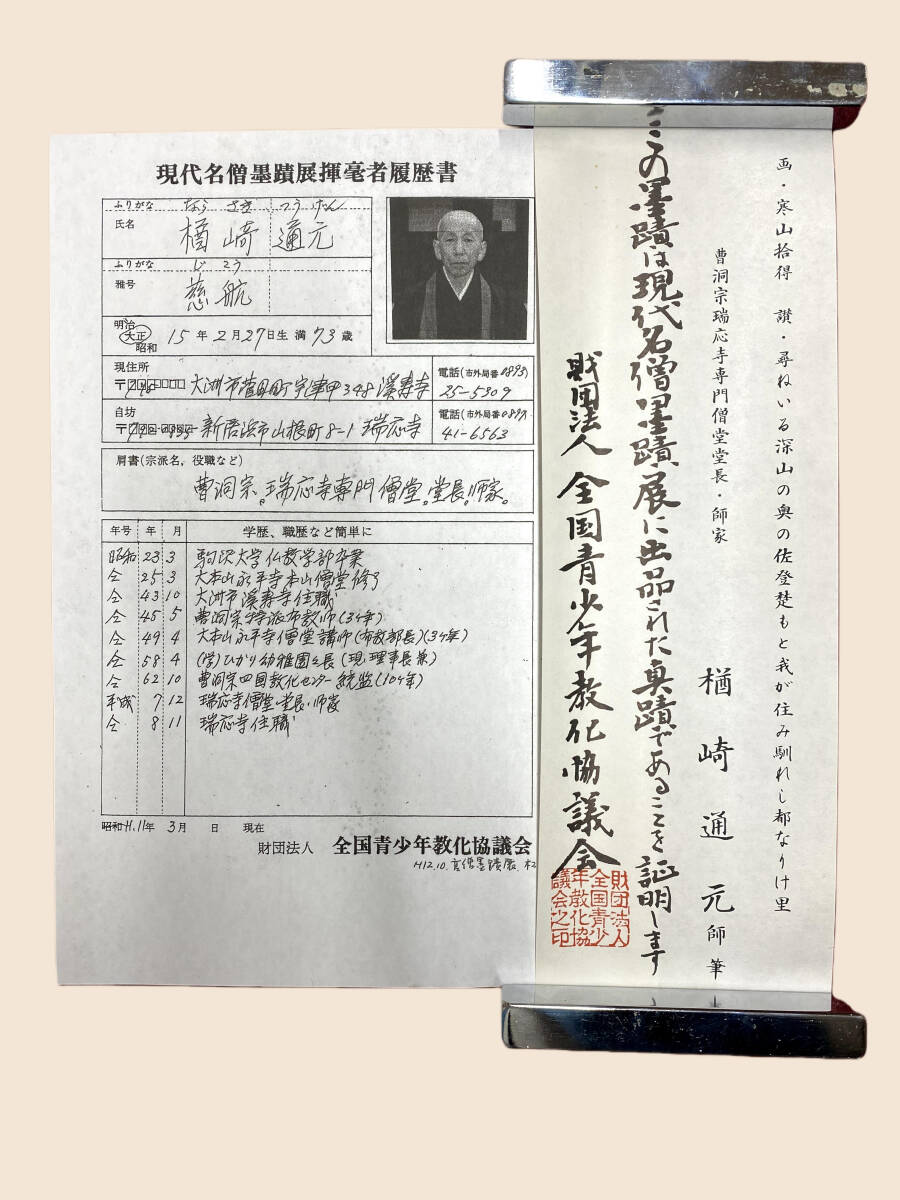 現代名僧墨蹟展揮毫者履歴書
ふりがな ならさき つうげん
氏名 楢崎 通元
ふりがな じこう
雅号 慈航
明治
大正
昭和
15年2月27日生 満73歳
現住所
大洲市菅田町宇津甲348 溪寿寺
電話(市外局番0893)
25-5309
自坊
新居浜市山根町8-1 瑞応寺
電話(市外局番0897)
41-6563
肩書(宗派名,役職など)
曹洞宗。瑞応寺専門僧堂。堂長。師家。
年号 年 月 学歴、職歴など簡単に
昭和 23 3 駒沢大学仏教学部卒業
仝 25 3 大本山永平寺本山僧堂修了
仝 43 10 大洲市溪寿寺住職
仝 45 5 曹洞宗特派布教師(3ヶ年)
仝 49 4 大本山永平寺僧堂講師(布教部長)(3ヶ年)
仝 58 4 (学)ひかり幼稚園々長(現理事長兼)
仝 62 10 曹洞宗四国教化センター統監(10ヶ年)
平成 7 12 瑞応寺僧堂・堂長・師家
仝 8 11 瑞応寺住職
昭和 H.11年 3月 日 現在
財団法人 全国青少年教化協議会
画・寒山拾得 讃・尋ねいる深山の奥の佐登楚もと我が住み馴れし都なりけ里
曹洞宗瑞応寺専門僧堂堂長・師家
楢崎通元師筆
この墨蹟は現代名僧墨蹟展に出品された真蹟であることを証明します
財団法人 全国青少年教化協議会
財団法人
全国青少
年教化協
議会之印